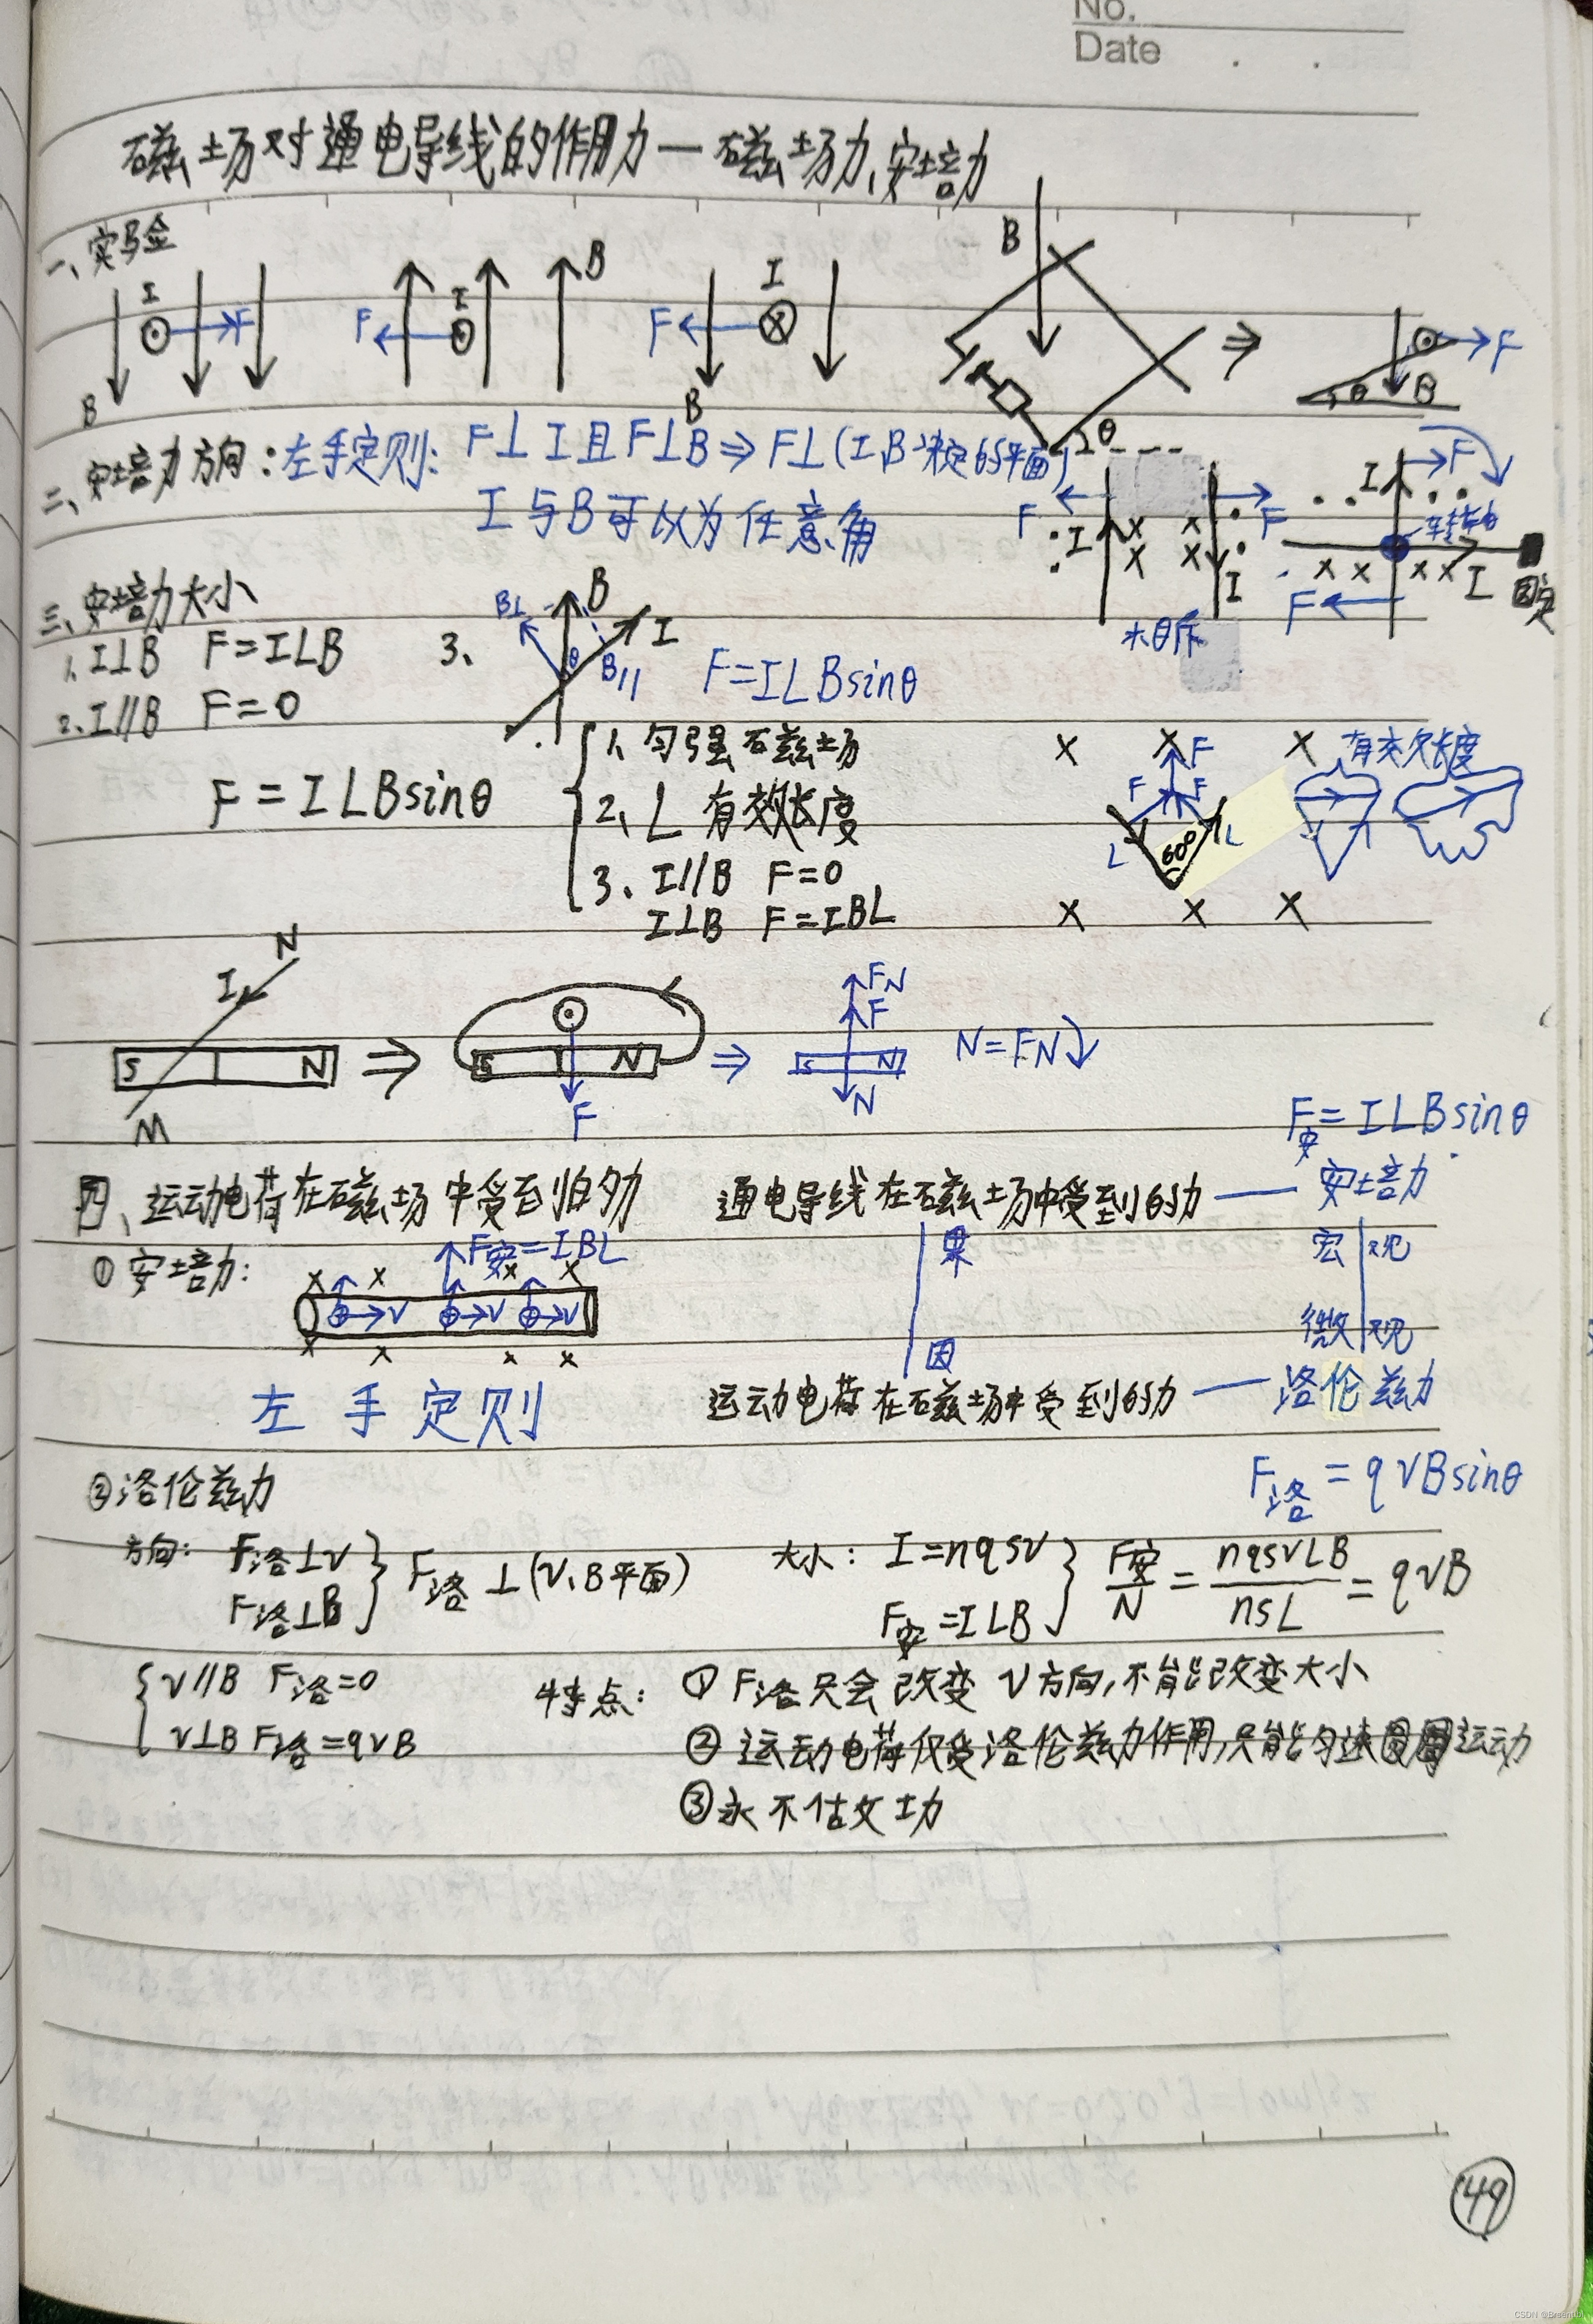 No.
Date
磁场对通电导线的作用力—磁场力、安培力
一、实验
B I F
F I B
F I B
B θ
F θ B
二、安培力方向：左手定则：F⊥I且F⊥B⇒F⊥(I,B决定的平面)
I与B可以为任意角
F I I F
I F 转轴 I 固定 F
相斥
三、安培力大小
1.I⊥B F=ILB
2.I//B F=0
3. B⊥ B I θ B// F=ILBsinθ
F=ILBsinθ
1、匀强磁场
2、L 有效长度
3、I//B F=0
I⊥B F=IBL
F F F L 60° L
有效长度
N I S N M
S N F
FN F S N N
N=FN
F安=ILBsinθ
四、运动电荷在磁场中受到的力
通电导线在磁场中受到的力——安培力
①安培力：
F安=IBL
V V V
左手定则
果
因
宏观
微观
运动电荷在磁场中受到的力——洛伦兹力
F洛=qVBsinθ
②洛伦兹力
方向：F洛⊥V
F洛⊥B
F洛⊥(V、B平面)
大小：I=nqsv
F安=ILB
F安/N=nqsvLB/nsL=qvB
V//B F洛=0
V⊥B F洛=qvB
特点：①F洛只会改变V方向,不能改变大小
②运动电荷仅受洛伦兹力作用,只能匀速圆周运动
③永不做功
49